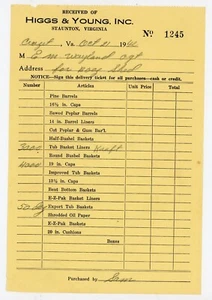 RECEIVED OF
HIGGS & YOUNG, INC.
STAUNTON, VIRGINIA
No 1245
Va. Oct 21 19
M C. M. Weyland agt
Address for
NOTICE—Sign this delivery ticket for all purchases—cash or credit.
Number Articles Unit Price Total
Pine Barrels
16¾ in. Caps
Sawed Poplar Barrels
18 in. Barrel Liners
Cut Poplar & Gum Bar'l.
Half-Bushel Baskets
3000 Tub Basket Liners Kraft
Round Bushel Baskets
4000 19 in. Caps
Improved Tub Baskets
18 in. Caps
Bent Bottom Baskets
E-Z-Pak Basket Liners
Export Tub Baskets
Shredded Oil Paper
E-Z-Pak Baskets
20 in. Cushions
Purchased by Sam